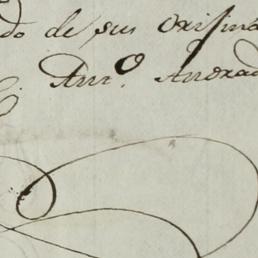 do de sus origina
Ant.º Andrad